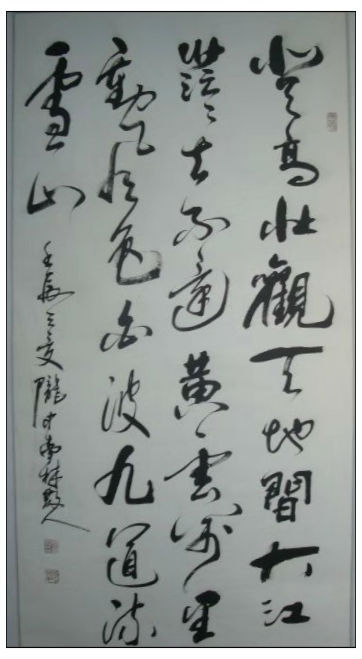 登高壯觀天地間大江
茫茫去不還黃雲万里
動風色白波九道流
雪山
壬辰之夏隴